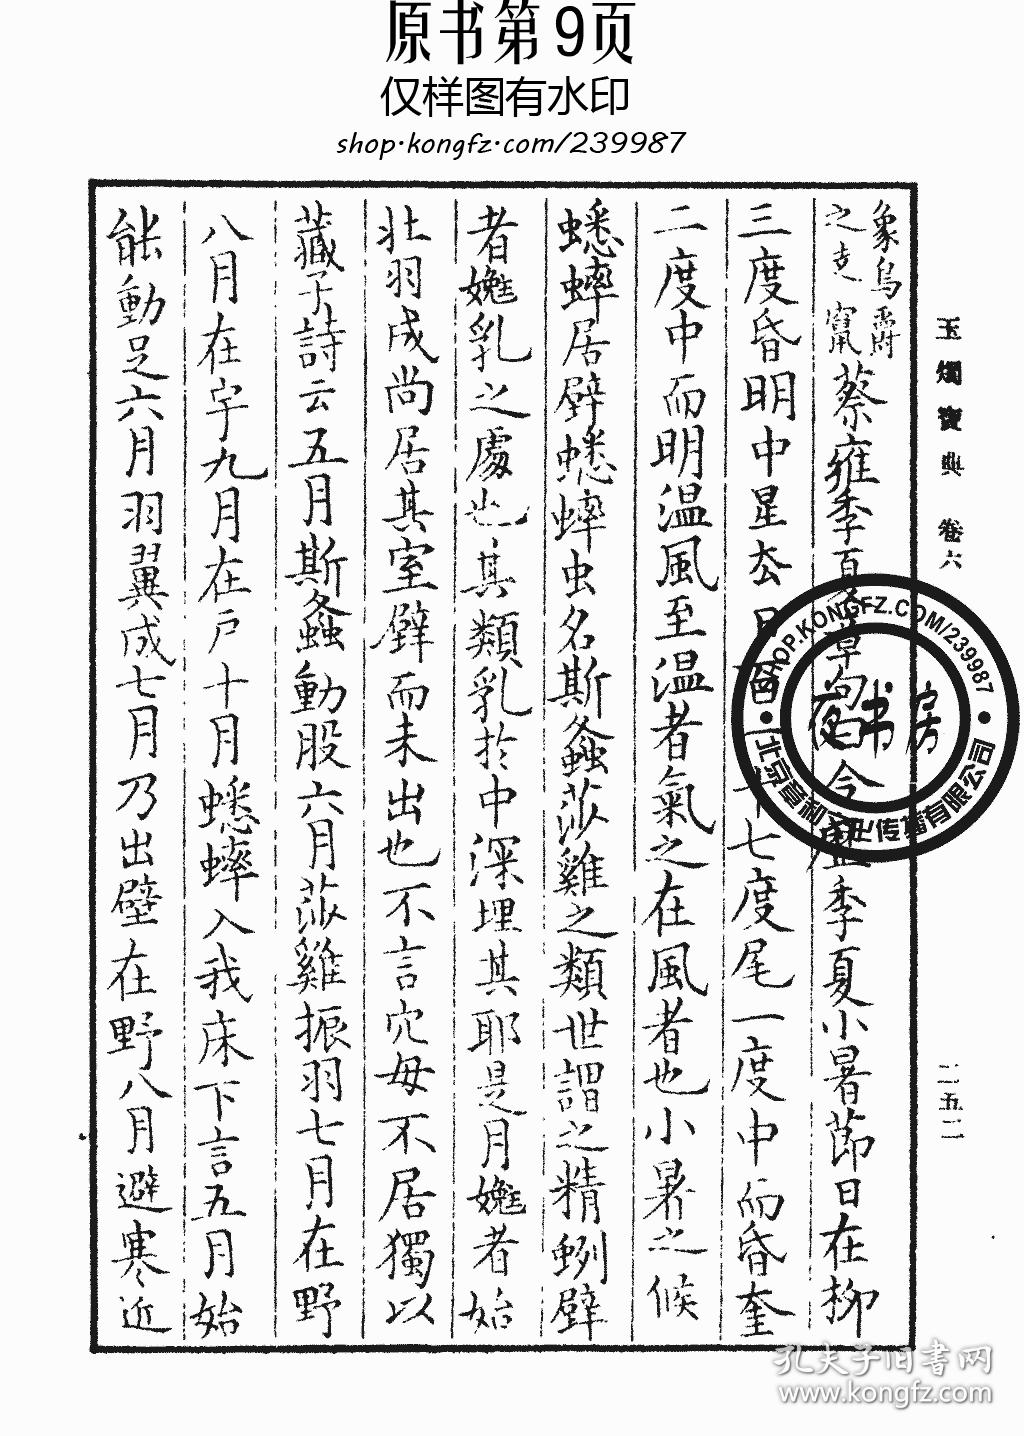 原书第9页
仅样图有水印
shop·kongfz·com/239987
玉燭寶典 卷六 二五二
象烏爵
之 竄
蔡雍季夏章句曰今 季夏小暑節日在柳
三度昏明中星去日百一十七度尾一度中而昏奎
二度中而明温風至温者氣之在風者也小暑之候
蟋蟀居壁蟋蟀虫名斯螽莎雞之類世謂之精蛚壁
者嬎乳之處也其類乳於中深埋其耶是月嬎者始
壯羽成尚居其室壁而未出也不言穴毋不居獨以
藏子詩云五月斯螽動股六月莎雞振羽七月在野
八月在宇九月在户十月蟋蟀入我床下言五月始
能動足六月羽翼成七月乃出壁在野八月避寒近
SHOP.KONGFZ.COM/239987
夜书房
孔夫子旧書网
www.kongfz.com